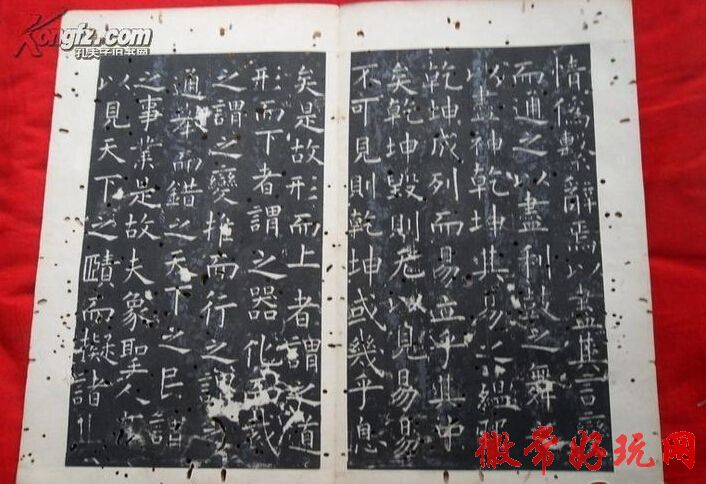 Kongfz.com
孔夫子旧书网
情偽繫辭焉以盡其言變
而通之以盡利鼓之舞
以盡神乾坤其易之緼
乾坤成列而易立乎其中
矣乾坤毀則无以見易易
不可見則乾坤或幾乎息
矣是故形而上者謂之道
形而下者謂之器化而裁
之謂之變推而行之謂之
通舉而錯之天下之民謂
之事業是故夫象聖人有
以見天下之賾而擬諸
微常好玩网